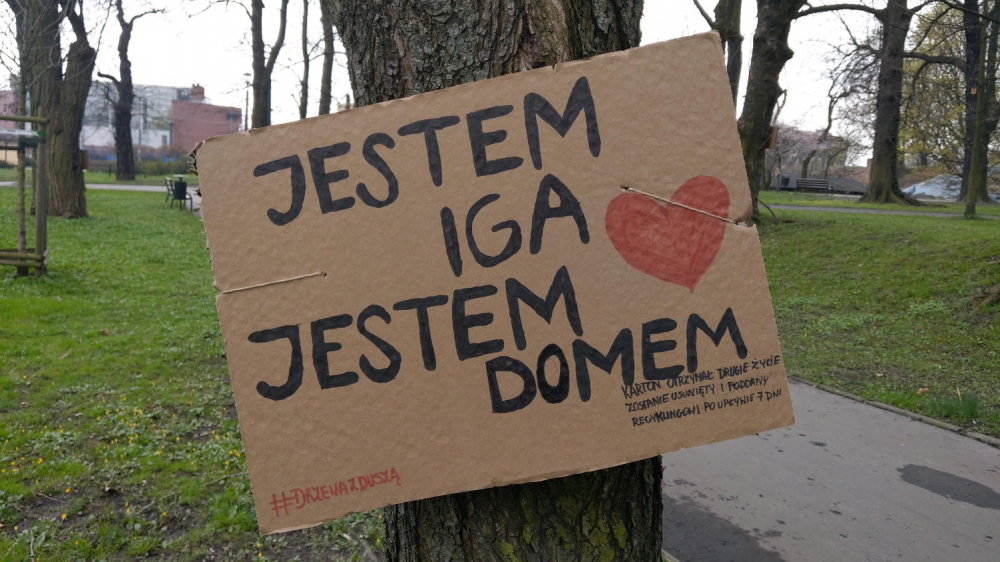 JESTEM
IGA
JESTEM
DOMEM
KARTON OTRZYMAŁ DRUGIE ŻYCIE
ZOSTANIE USUNIĘTY I PODDANY
RECYKLINGOWI PO UPŁYWIE 7 DNI
#DRZEWAZDUSZĄ